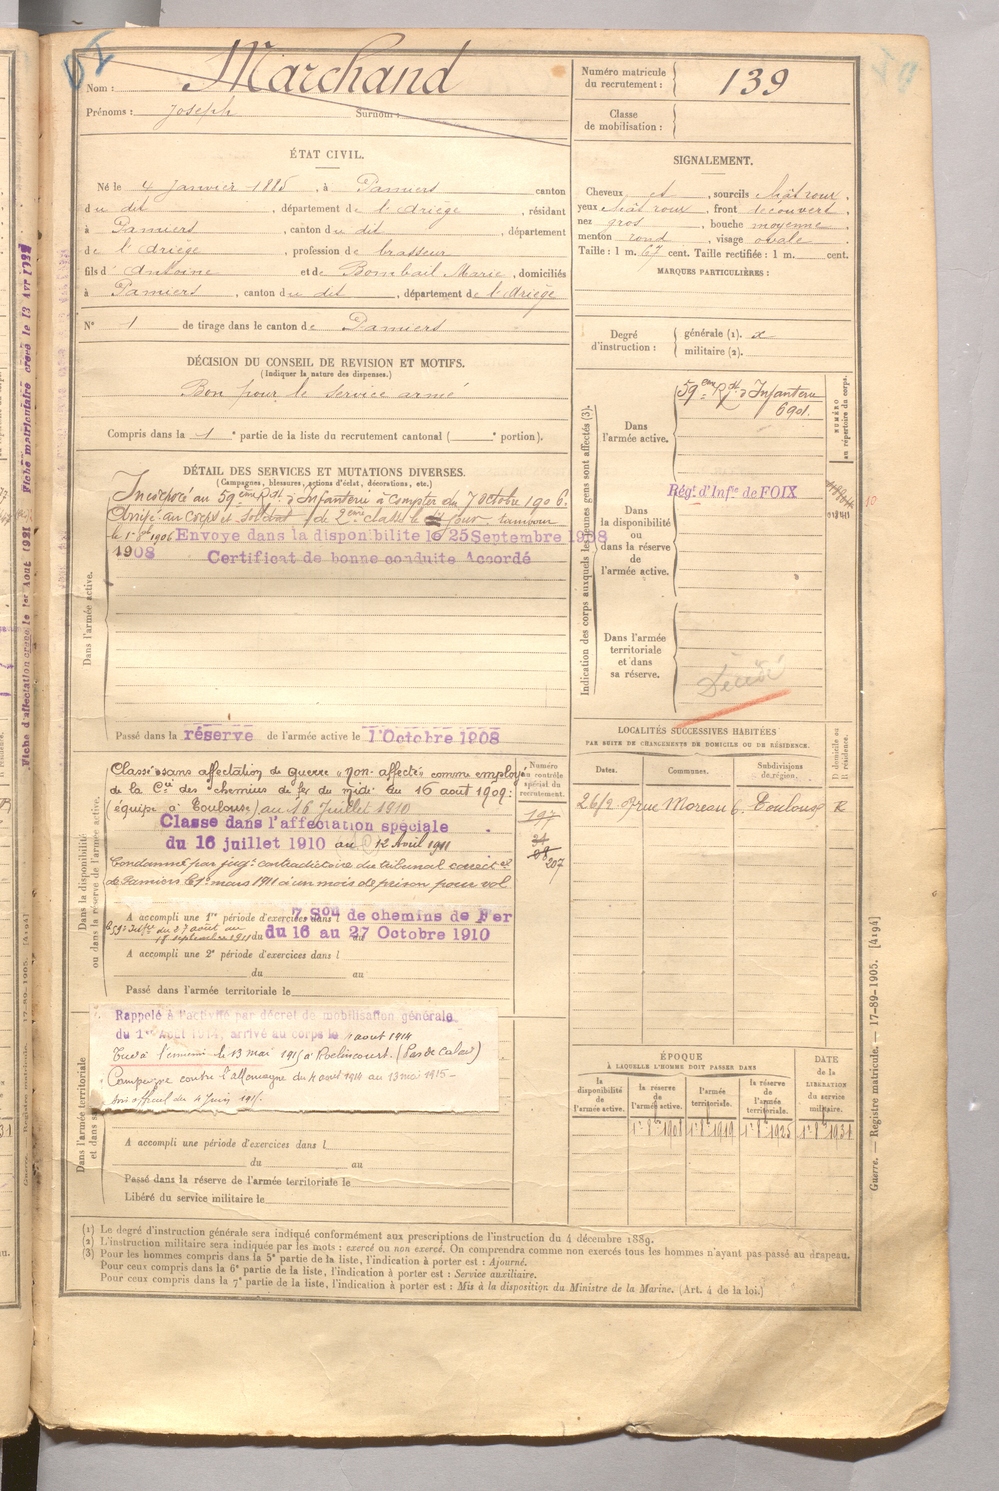 Nom : Marchand
Prénoms : Joseph Surnom :
Numéro matricule du recrutement : 139
Classe de mobilisation :
ÉTAT CIVIL.
Né le 4 Janvier 1885, à Pamiers canton
du dit, département de l'Ariège, résidant
à Pamiers, canton du dit, département
de l'Ariège, profession de brasseur
fils d'Antoine et de Bombail Marie, domiciliés
à Pamiers, canton du dit, département de l'Ariège
N° 1 de tirage dans le canton de Pamiers
SIGNALEMENT.
Cheveux et, sourcils chât roux,
yeux chât roux, front découvert,
nez gros, bouche moyenne,
menton rond, visage ovale.
Taille : 1 m. 67 cent. Taille rectifiée : 1 m. cent.
MARQUES PARTICULIÈRES :
Degré d'instruction : générale (1). 2
militaire (2).
DÉCISION DU CONSEIL DE REVISION ET MOTIFS.
(Indiquer la nature des dispenses.)
Bon pour le service armé
Compris dans la 1e partie de la liste du recrutement cantonal ( e portion).
DÉTAIL DES SERVICES ET MUTATIONS DIVERSES.
(Campagnes, blessures, actions d'éclat, décorations, etc.)
Dans l'armée active.
Incorporé au 59ème Rgt d'Infanterie à compter du 7 octobre 1906.
Arrivé au corps et soldat de 2ème classe le dit jour. tambour
le 1er 8bre 1906 Envoyé dans la disponibilite le 25 Septembre 1908
1908 Certificat de bonne conduite Accordé
Passé dans la réserve de l'armée active le 1er Octobre 1908
Indication des corps auxquels les jeunes gens sont affectés (3).
NUMÉRO au répertoire du corps.
Dans l'armée active.
59ème Rgt d'Infanterie
6901.
Dans la disponibilité ou dans la réserve de l'armée active.
Régt d'Infie de FOIX
Dans l'armée territoriale et dans sa réserve.
Décédé
Dans la disponibilité ou dans la réserve de l'armée active.
Classé sans affectation de guerre "non-affecté" comme employé
de la Cie des chemins de fer du midi du 16 août 1909:
(équipe à Toulouse) au 16 Juillet 1910
Classe dans l'affectation spéciale
du 16 juillet 1910 au 12 Avril 1911
Condamné par jugt contradictoire du tribunal correctel
de Pamiers le 1er mars 1911 à un mois de prison pour vol
A accompli une 1re période d'exercices dans l 7 Son de chemins de Fer
du 16 au 27 Octobre 1910
le 59e Infie du 27 août au
18 septembre 1911
A accompli une 2e période d'exercices dans l
du au
Passé dans l'armée territoriale le
Numéro au contrôle spécial du recrutement.
197
207
LOCALITÉS SUCCESSIVES HABITÉES
PAR SUITE DE CHANGEMENTS DE DOMICILE OU DE RÉSIDENCE.
Dates. Communes. Subdivisions de région. D domicile ou R résidence.
26/2 09 rue Moreau 6 Toulouse R
Dans l'armée territoriale
Rappelé à l'activité par décret de mobilisation générale
du 1er Août 1914, arrivé au corps le 4 août 1914
Tué à l'ennemi le 13 mai 1915 à Roclincourt. (Pas de Calais)
Campagne contre l'Allemagne du 4 août 1914 au 13 mai 1915 –
avis officiel du 4 Juin 1915.
A accompli une période d'exercices dans l
du au
Passé dans la réserve de l'armée territoriale le
Libéré du service militaire le
ÉPOQUE
À LAQUELLE L'HOMME DOIT PASSER DANS
la disponibilité de l'armée active. la réserve de l'armée active. l'armée territoriale. la réserve de l'armée territoriale.
DATE de la LIBÉRATION du service militaire.
1er 8bre 1908 1er 8bre 1919 1er 8bre 1925 1er 8bre 1931
(1) Le degré d'instruction générale sera indiqué conformément aux prescriptions de l'instruction du 4 décembre 1889.
(2) L'instruction militaire sera indiquée par les mots : exercé ou non exercé. On comprendra comme non exercés tous les hommes n'ayant pas passé au drapeau.
(3) Pour les hommes compris dans la 5e partie de la liste, l'indication à porter est : Ajourné.
Pour ceux compris dans la 6e partie de la liste, l'indication à porter est : Service auxiliaire.
Pour ceux compris dans la 7e partie de la liste, l'indication à porter est : Mis à la disposition du Ministre de la Marine. (Art. 4 de la loi.)
Guerre. — Registre matricule. — 17-89-1905. [4194]